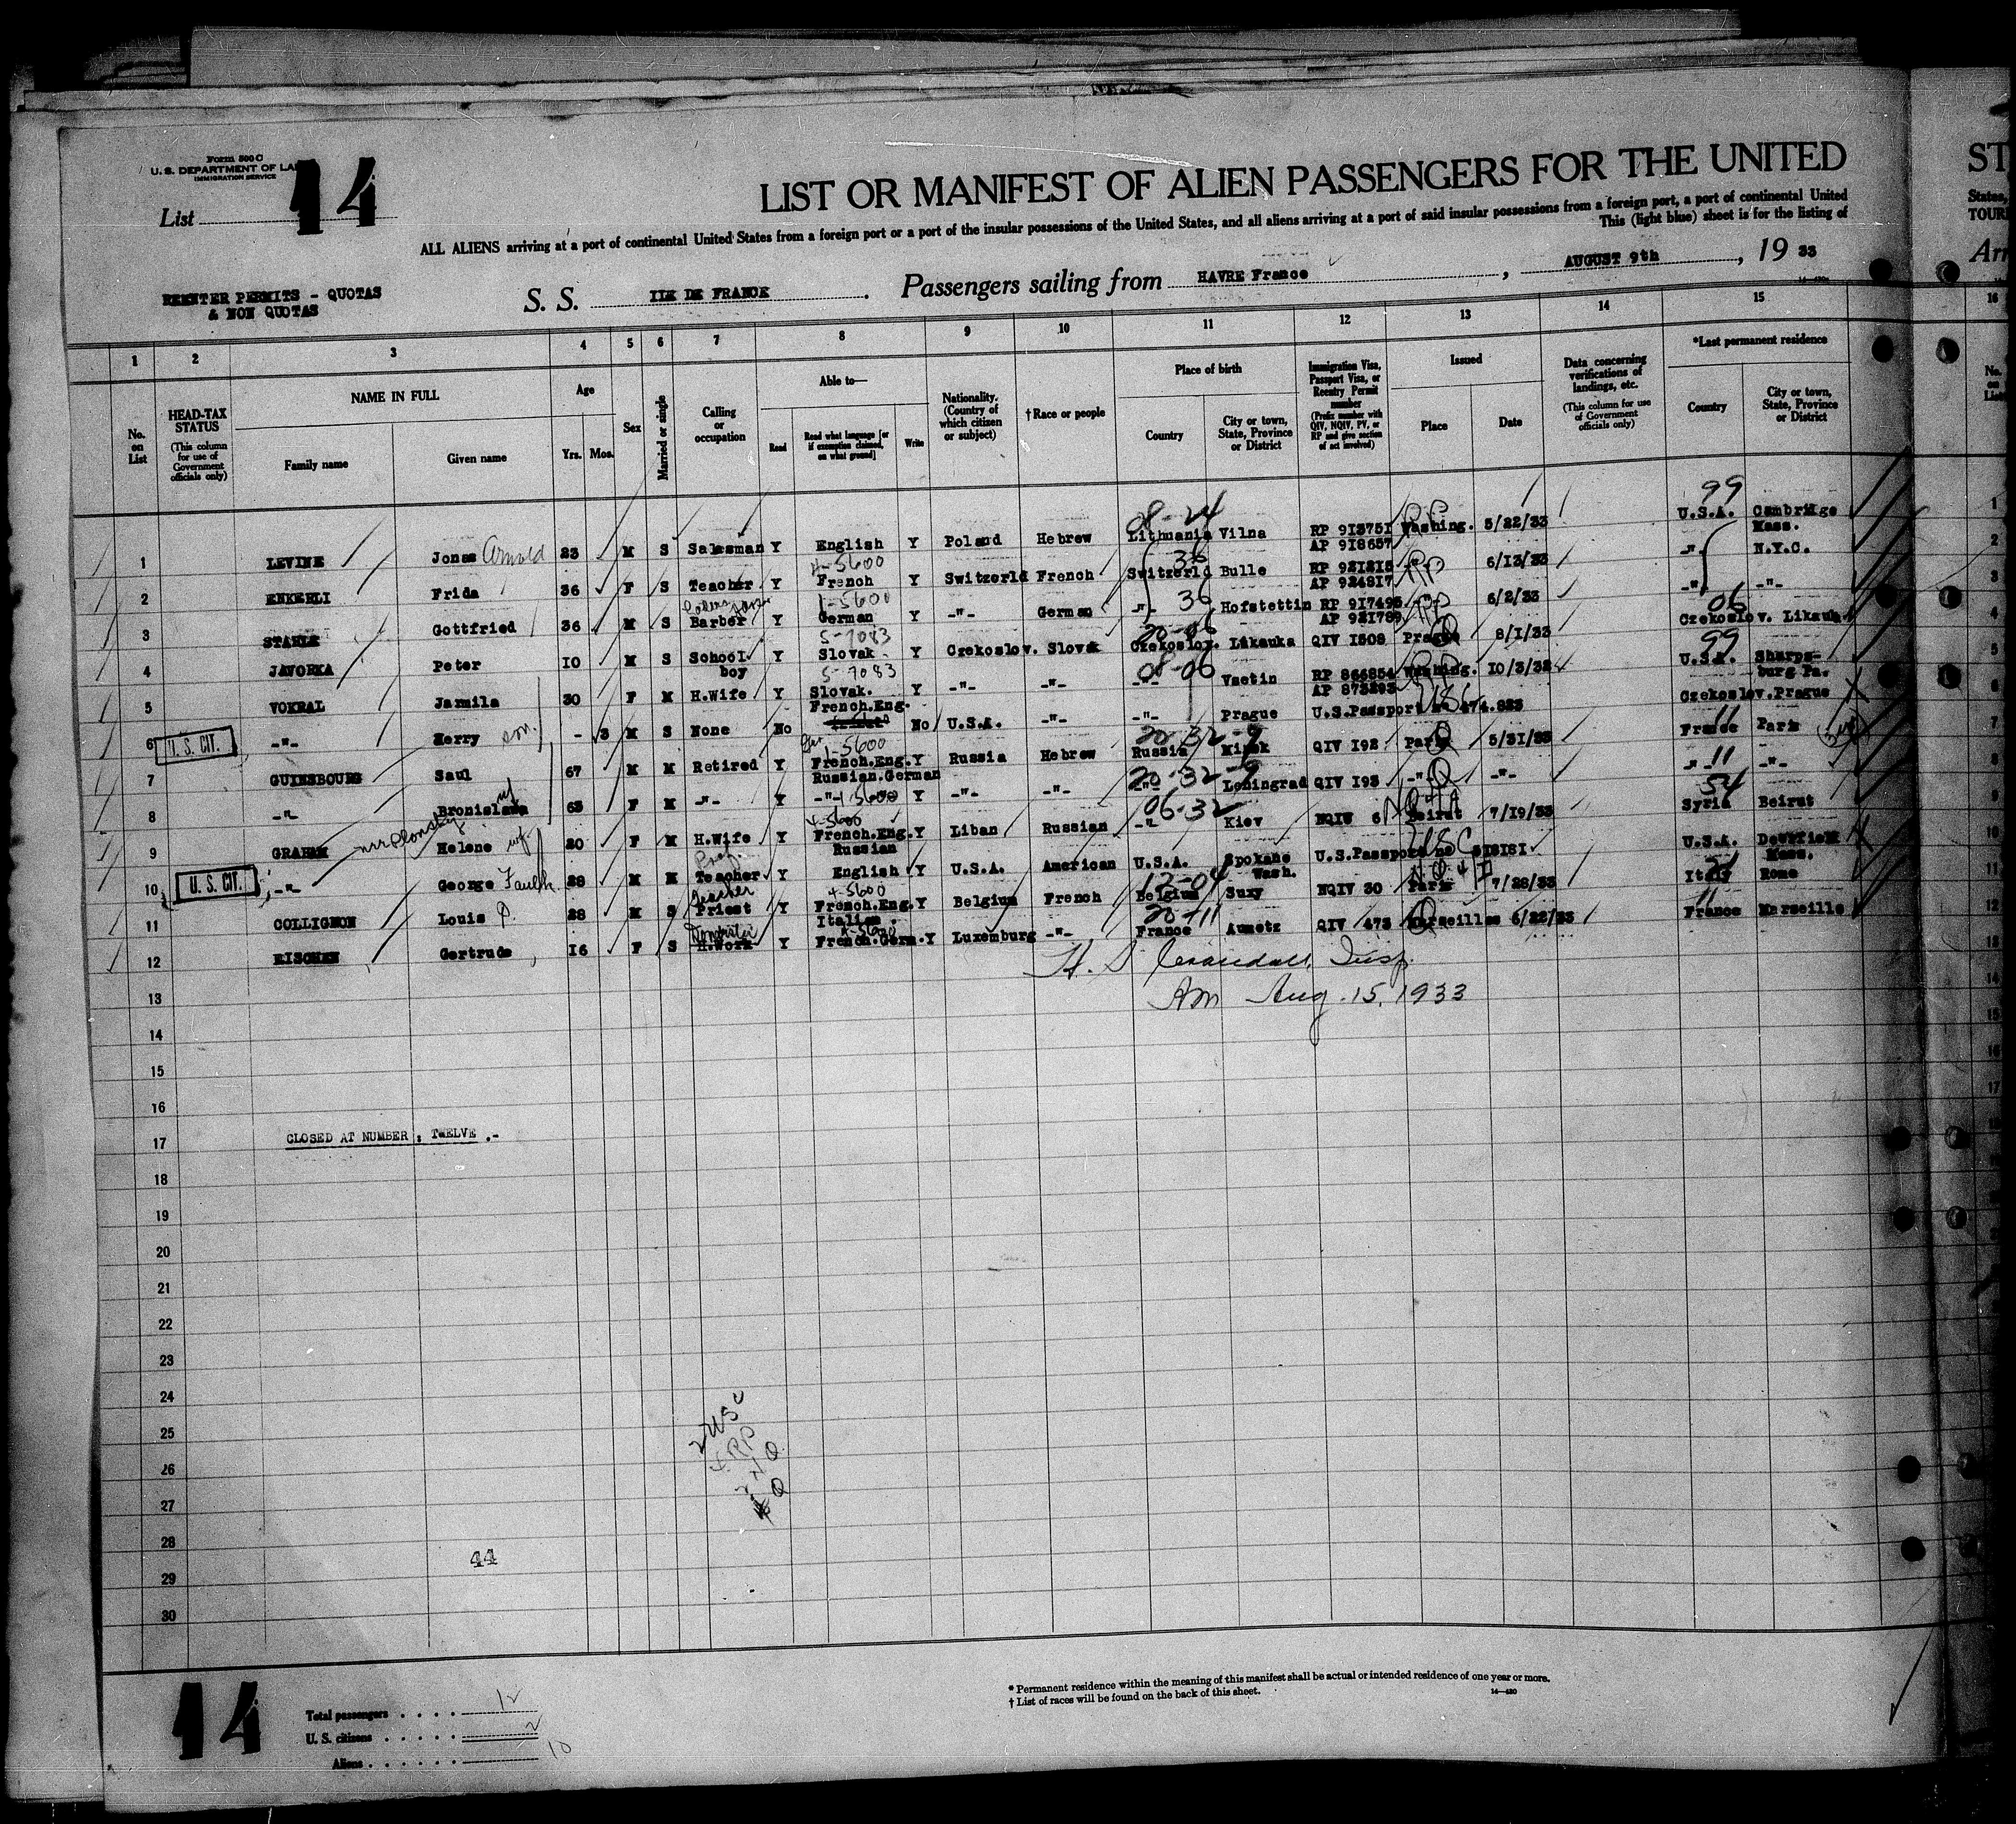 Form 500 C
U. S. DEPARTMENT OF LA
IMMIGRATION SERVICE
List 14
LIST OR MANIFEST OF ALIEN PASSENGERS FOR THE UNITED
ALL ALIENS arriving at a port of continental United States from a foreign port or a port of the insular possessions of the United States, and all aliens arriving at a port of said insular possessions from a foreign port, a port of continental United
This (light blue) sheet is for the listing of
REENTER PERMITS - QUOTAS
& NON QUOTAS
S. S. ILE DE FRANCE . Passengers sailing from HAVRE France , AUGUST 9th , 19 33
ST
States,
TOUR
Arr
1 2 3 4 5 6 7 8 9 10 11 12 13 14 15 16
No. on List
HEAD-TAX STATUS
(This column for use of Government officials only)
NAME IN FULL
Family name
Given name
Age
Yrs. Mos.
Sex
Married or single
Calling or occupation
Able to—
Read
Read what language [or if exemption claimed, on what ground]
Write
Nationality. (Country of which citizen or subject)
† Race or people
Place of birth
Country
City or town, State, Province or District
Immigration Visa, Passport Visa, or Reentry Permit number
(Prefix number with QIV, NQIV, PV, or RP and give section of act involved)
Issued
Place
Date
Data concerning verifications of landings, etc.
(This column for use of Government officials only)
*Last permanent residence
Country
City or town, State, Province or District
1 LEVINE Jonas Arnold 23 M S Salesman Y English Y Poland Hebrew 08-24 Lithuania Vilna RP 913751 AP 918657 RP Washing. 5/22/33 99 U.S.A. Cambridge Mass.
2 ENKERLI Frida 36 F S Teacher Y 4-5600 French Y Switzerld French 36 Switzerld Bulle RP 921215 AP 924817 RP 6/13/33 -"- N.Y.C.
3 STAHLE Gottfried 36 M S Barber Y 1-5600 German Y -"- German 36 -"- Hofstettin RP 917495 AP 921789 RP 6/2/33 -"- -"-
4 JAVORKA Peter 10 M S School boy Y 5-7083 Slovak Y Czekoslov. Slovak 20-06 Czekoslov. Likauka QIV 1508 Prague 8/1/33 06 Czekoslov. Likauk.
5 VOKRAL Jarmila 30 F M H.Wife Y 5-7083 Slovak. French.Eng. Y -"- -"- 08-06 -"- Vsetin RP 866854 AP 873293 Washing. 10/3/32 99 U.S.A. Sharps-burg Pa.
6 U. S. CIT. -"- Herry son - 3 M S None No No U.S.A. -"- -"- Prague U.S.Passport no 474.823 Czekoslov. Prague
7 GUINSBOURG Saul 67 M M Retired Y 1-5600 French.Eng. Russian.German Y Russia Hebrew 20-32-9 Russia Minsk QIV 192 Paris Q 5/31/33 11 France Paris
8 -"- Bronislawa wf 63 F M -"- Y -"- 1-5600 Y -"- -"- 20-32-9 -"- Leningrad QIV 193 -"- Q -"- 11 -"- -"-
9 GRAHAM nee Plonsky Helene wf 20 F M H.Wife Y 4-5600 French.Eng. Russian Y Liban Russian 06-32 -"- Kiev NQIV 6 Beirut 7/19/33 54 Syria Beirut
10 U. S. CIT. -"- George Faulk. 29 M M Prof. Teacher Y English Y U.S.A. American U.S.A. Spokane Wash. U.S.Passport no 515151 USC U.S.A. Deerfield Mass.
11 COLLIGNON Louis P. 28 M S Teacher Priest Y 4-5600 French.Eng. Italian. Y Belgium French 12-04 Belgium Suxy NQIV 30 Paris 7/28/33 Italy Rome
12 RISCHEN Gertrude 16 F S Domestic H.Work Y 4-5600 French.Germ. Y Luxemburg -"- 20-11 France Aumetz QIV 473 Q Marseilles 6/22/33 11 France Marseille
H. D. Crandall, Insp.
Aug. 15, 1933
13
14
15
16
17 CLOSED AT NUMBER : TWELVE .-
18
19
20
21
22
23
24
25
26
27
28
29
30
2 USC
4 RP
2 NQ
4 Q
44
14
Total passengers . . . . 12
U. S. citizens . . . . . 2
Aliens . . . . . . 10
* Permanent residence within the meaning of this manifest shall be actual or intended residence of one year or more.
† List of races will be found on the back of this sheet.
14—420